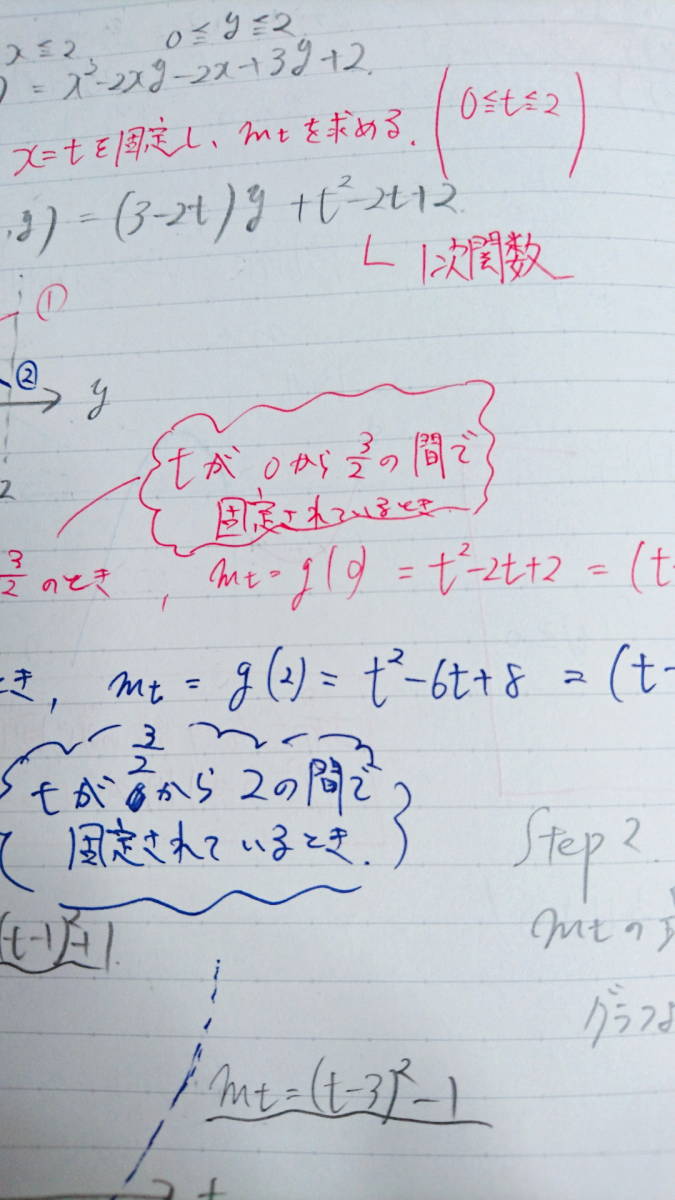 x≦2 0≦y≦2
) = x²-2xy-2x+3y+2.
x=tを固定し、mtを求める. (0≦t≦2)
,y) = (3-2t)y+t²-2t+2.
1次関数
①
②
y
2
tが0から3/2の間で
固定されているとき.
3/2のとき, mt=g(0) = t²-2t+2 = (t-
とき, mt = g(2) = t²-6t+8 = (t-
tが3/2から2の間で
固定されているとき.
Step 2.
mtの
グラフよ
(t-1)²+1.
mt=(t-3)²-1
t